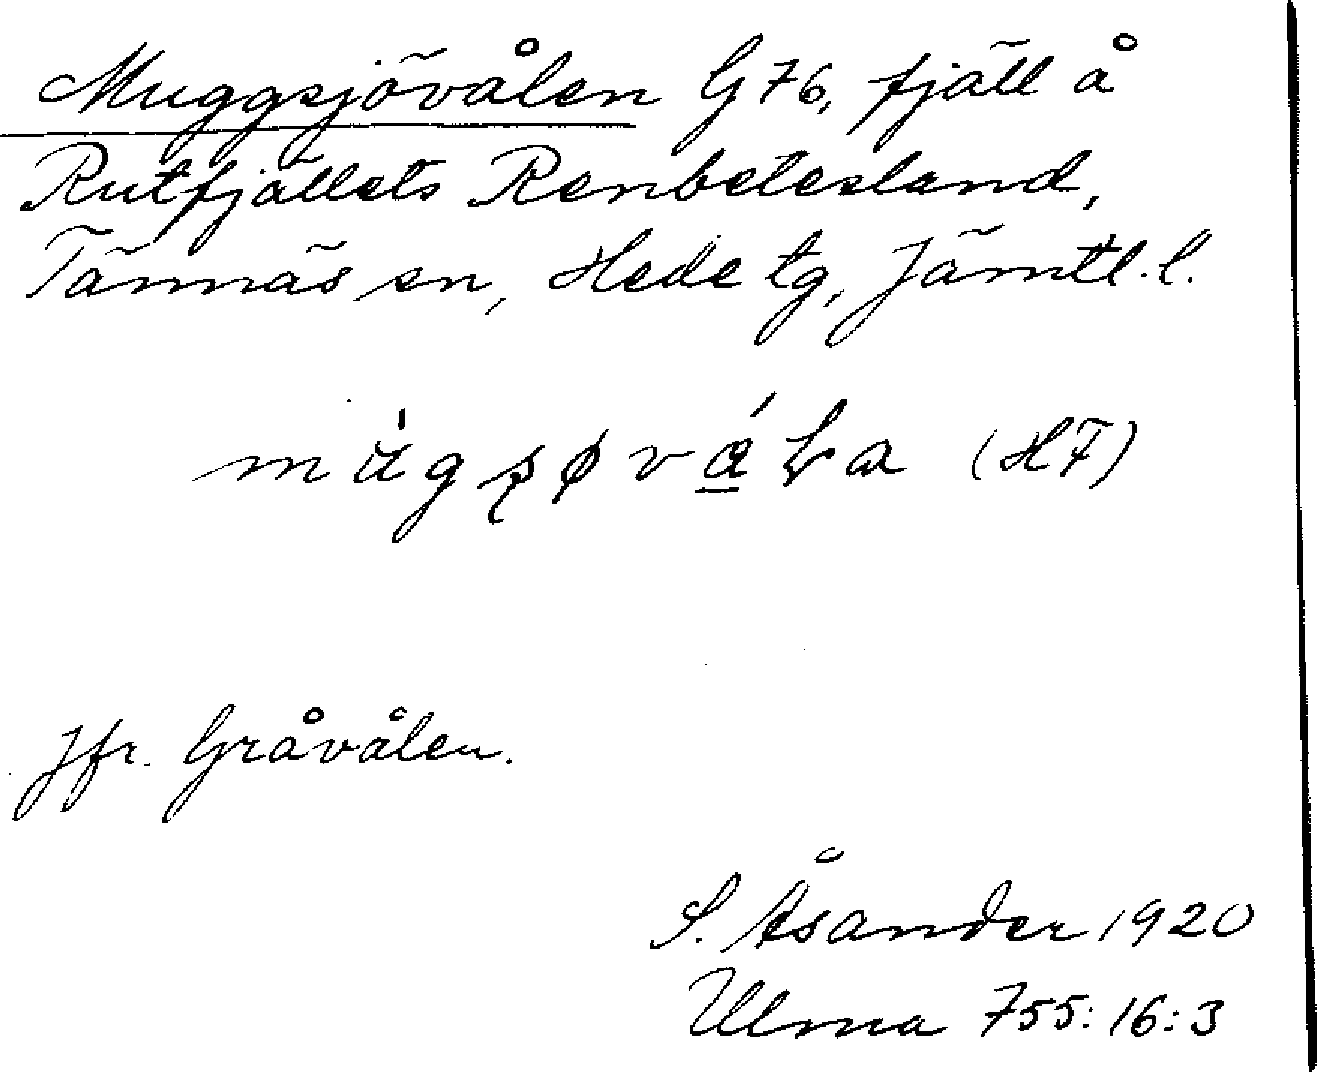 Muggsjövålen G 76, fjäll å
Rutfjällets Renbetesland,
Tännäs sn, Hede tg, Jämtl. l.
(HF)
Jfr. Gråvålen.
S. Åsander 1920
Ulma 755:16:3